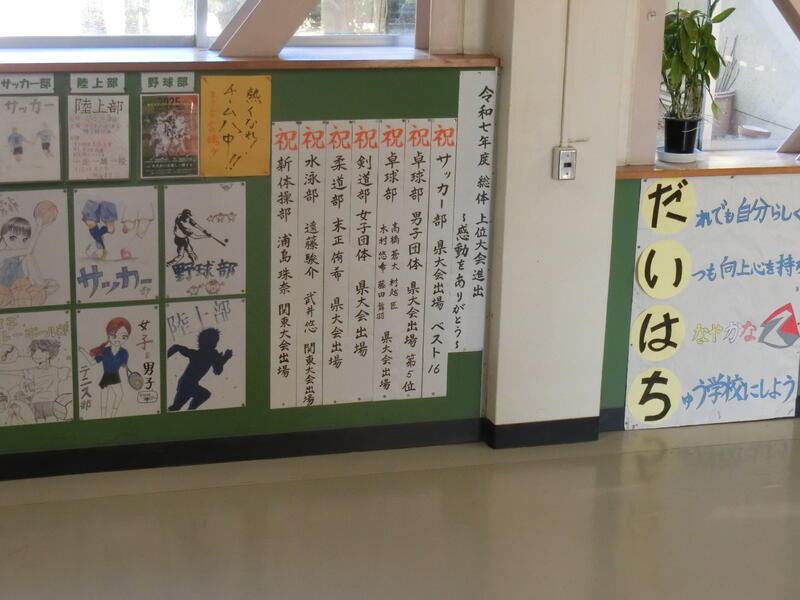 サッカー部
陸上部
野球部
サッカー
陸上部
2025
熱くなれ!
チーム八中!!
サッカー
野球部
女子&男子
テニス部
陸上部
令和七年度 総体 上位大会進出
~感動をありがとう~
祝 サッカー部 県大会出場 ベスト16
祝 卓球部 男子団体 県大会出場 第5位
祝 卓球部 高橋 蒼大 木村 悠希 県大会出場
祝 剣道部 女子団体 県大会出場
祝 柔道部 末正 侑希 県大会出場
祝 水泳部 遠藤 駿介 武井 悠 関東大会出場
祝 新体操部 浦島 珠奈 関東大会出場
だれでも自分らしく
いつも向上心を持
はなやかな
ちゅう学校にしよう